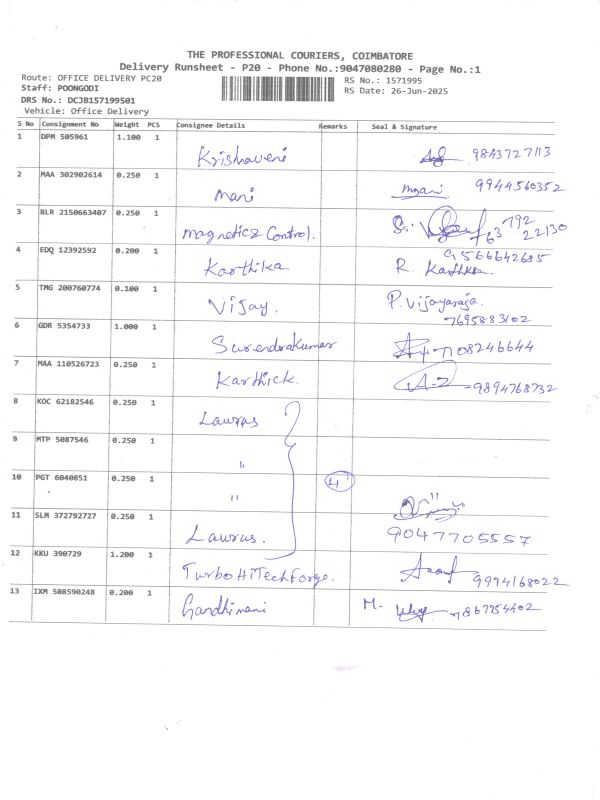 THE PROFESSIONAL COURIERS, COIMBATORE
Delivery Runsheet - P20 - Phone No.:9047080280 - Page No.:1
Route: OFFICE DELIVERY PC20
RS No.: 1571995
Staff: POONGODI
RS Date: 26-Jun-2025
DRS No.: DCJB157199501
Vehicle: Office Delivery
S No Consignment No Weight PCS Consignee Details Remarks Seal & Signature
1 DPM 505961 1.100 1 Krishnaveni 9843727113
2 MAA 302902614 0.250 1 Mani mani 9944560352
3 BLR 2150663407 0.250 1 Magnetics Control. S. 763 792 22130
4 EDQ 12392592 0.200 1 Karthika R. Karthika 9566642685
5 TMG 200760774 0.100 1 Vijay. P. Vijayaraja.
7695883102
6 GDR 5354733 1.000 1 Surendrakumar 7708246644
7 MAA 110526723 0.250 1 Karthick. 9894768732
8 KOC 62182546 0.250 1 Laurus
9 MTP 5087546 0.250 1 "
10 PGT 6040851 0.250 1 " 4
11 SLM 372792727 0.250 1 Laurus. 9047705557
12 KKU 390729 1.200 1 Turbo HiTech Forge. 9994168022
13 IXM 508590248 0.200 1 Gandhimani M.